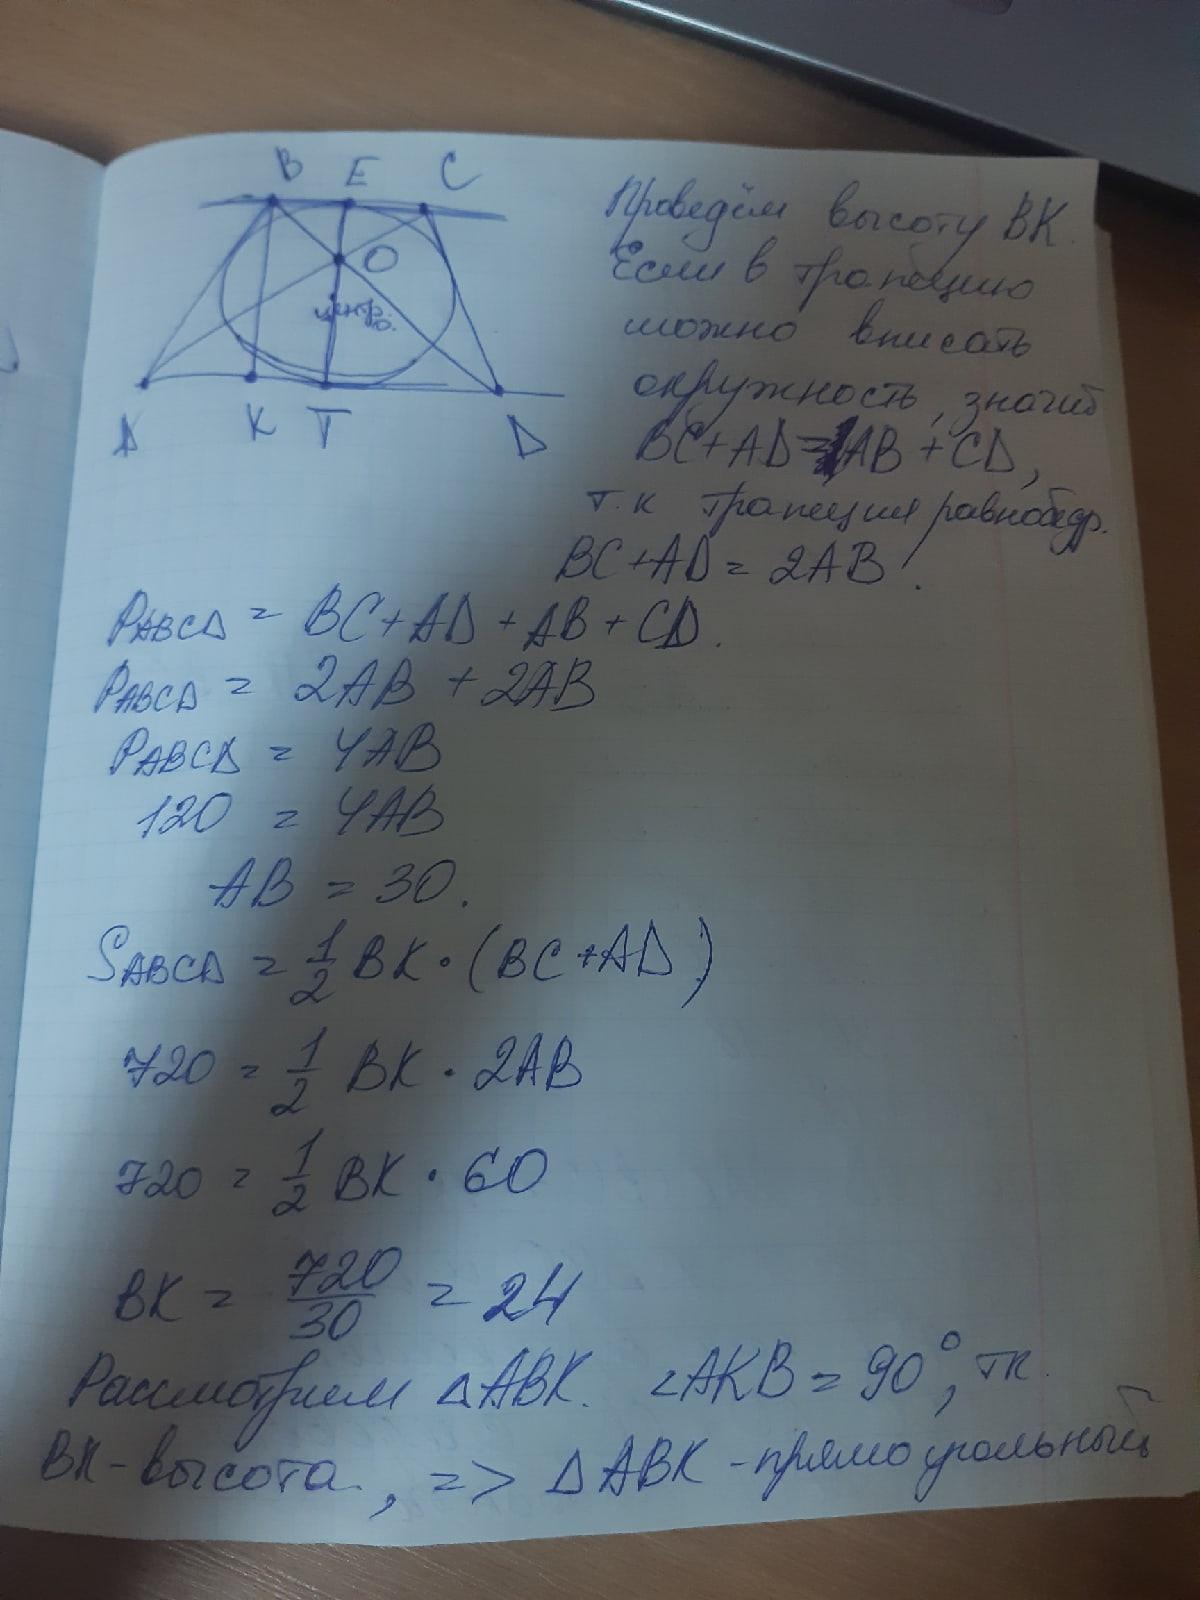 B E C
O
центр
о.
A K T D
Проведём высоту BK.
Если в трапецию
можно вписать
окружность, значит
BC+AD=AB+CD,
т.к трапеция равнобедр.
BC+AD = 2AB.
PABCD = BC+AD+AB+CD.
PABCD = 2AB + 2AB
PABCD = 4AB
120 = 4AB
AB = 30.
SABCD = 1/2 BK·(BC+AD)
720 = 1/2 BK · 2AB
720 = 1/2 BK · 60
BK = 720/30 = 24
Рассмотрим △ABK. ∠AKB = 90°, тк
BK-высота, => △ABK-прямоугольный